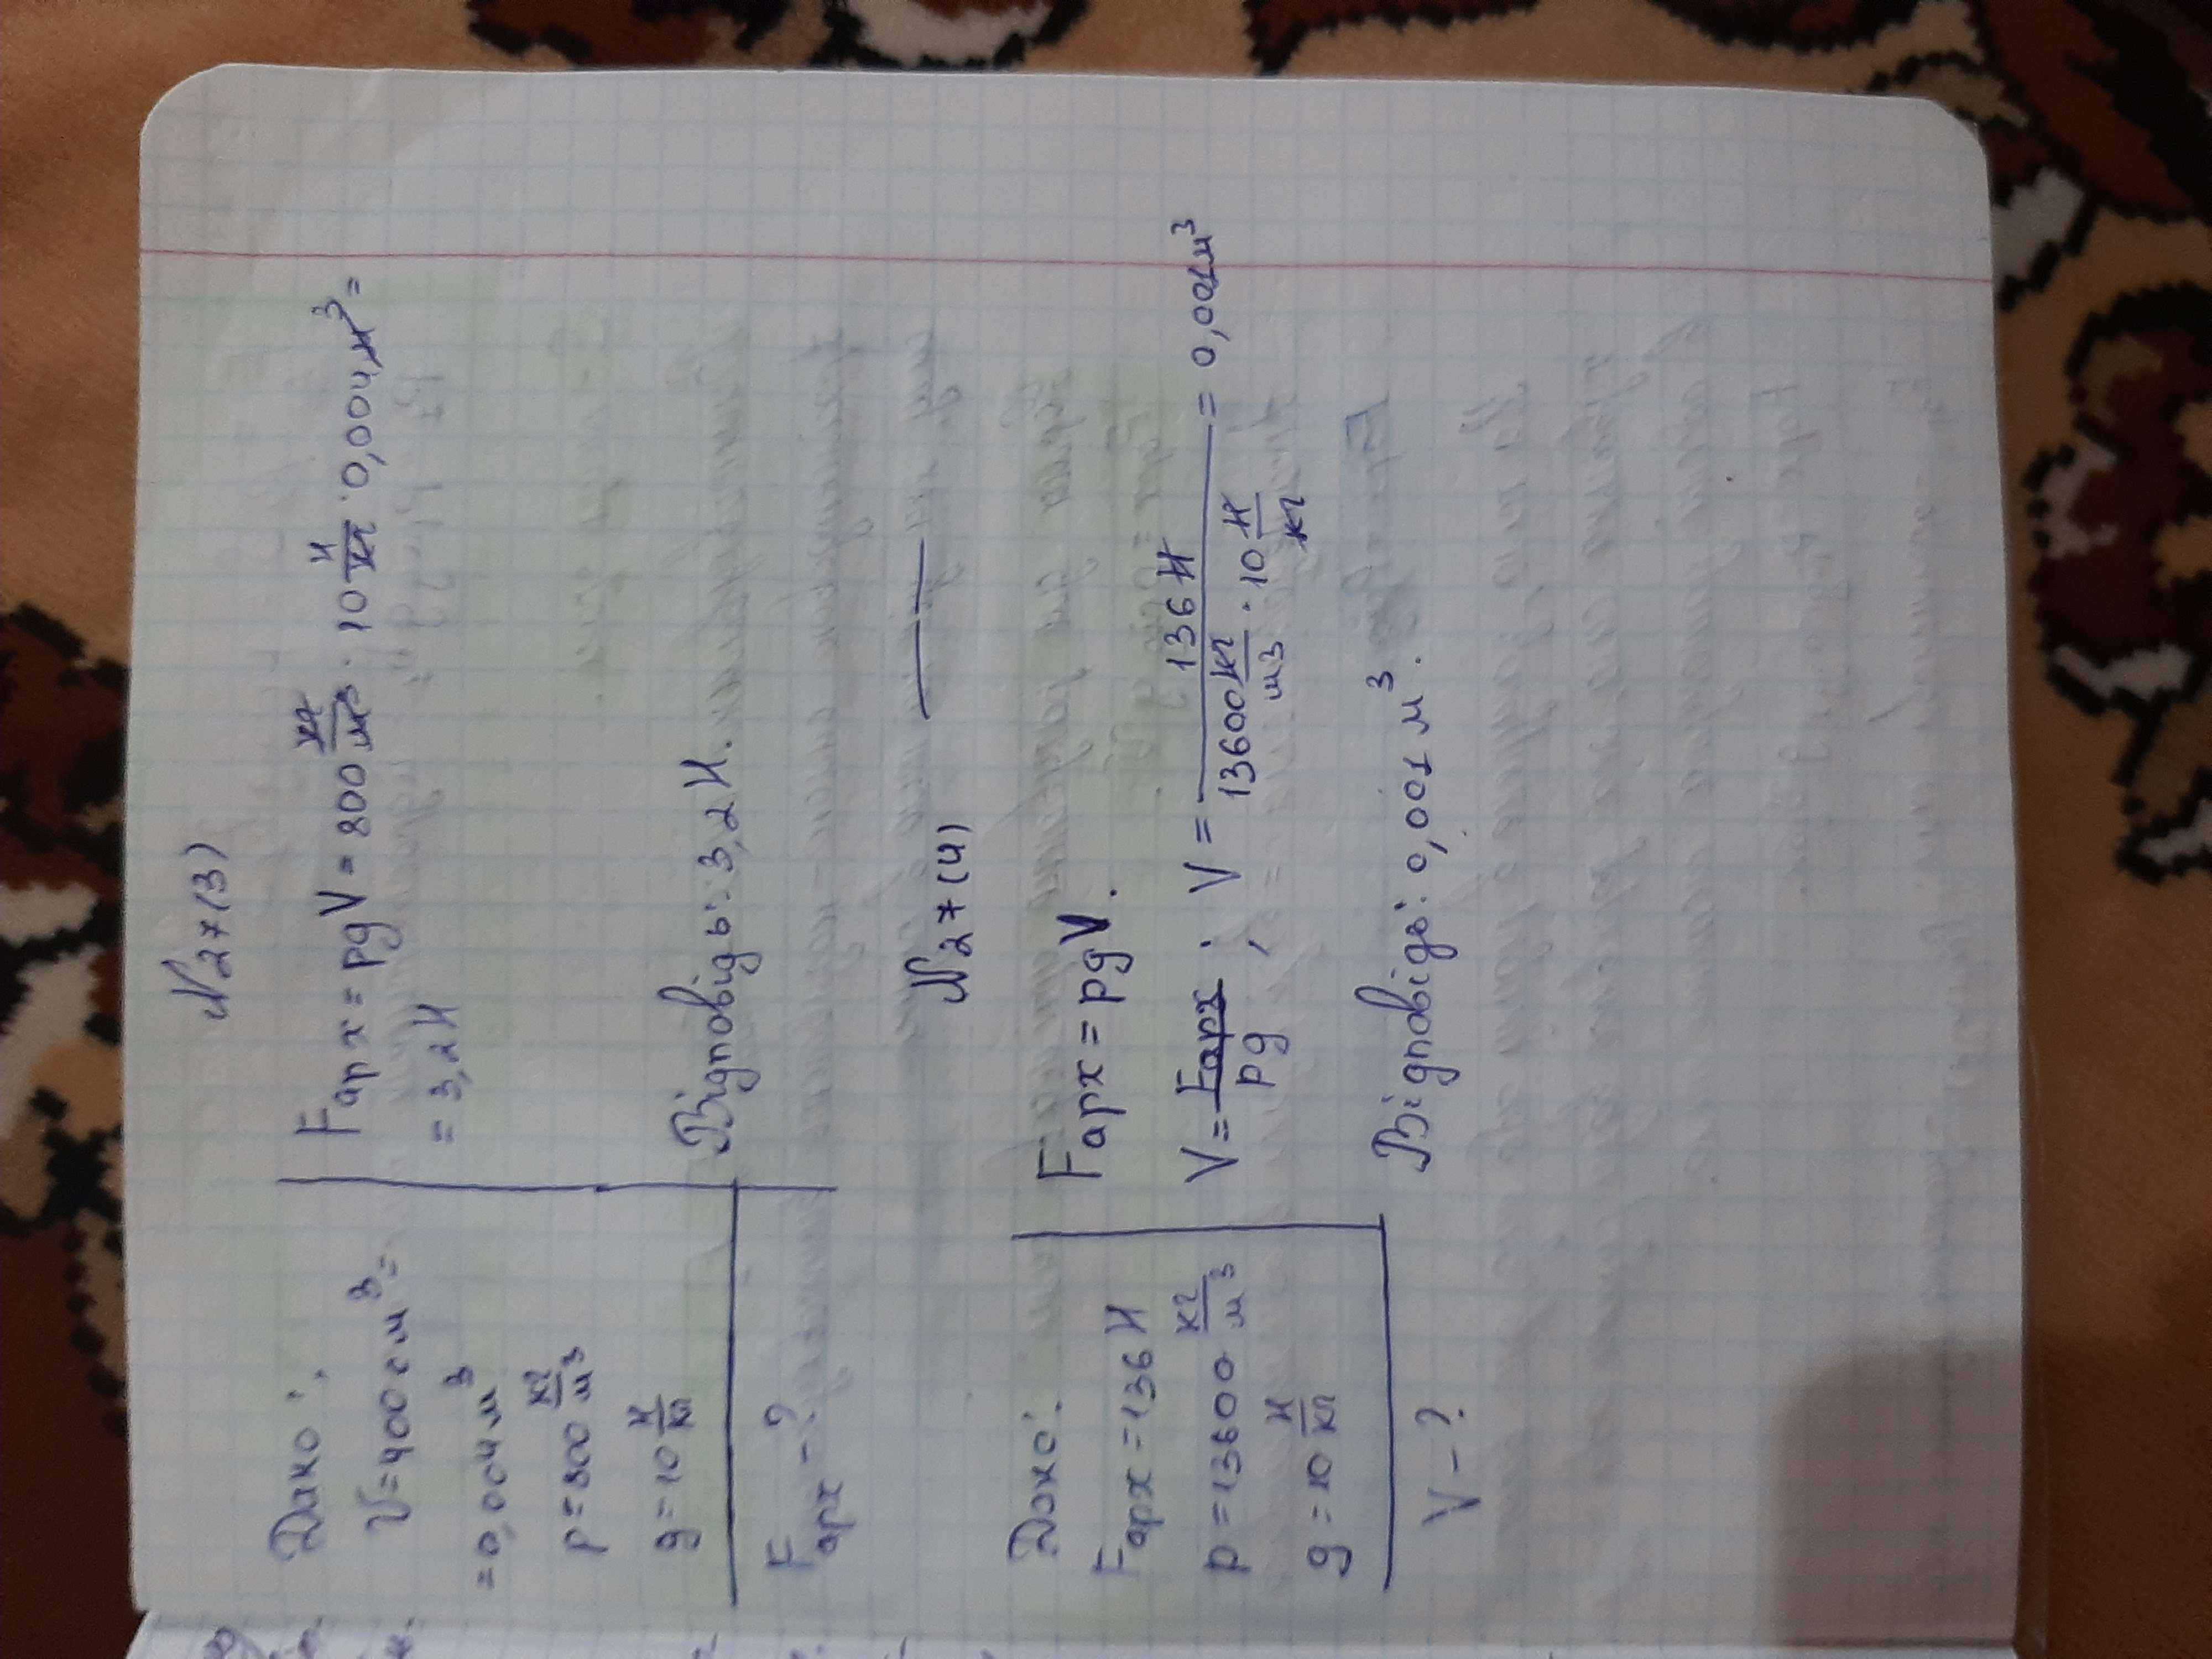 №27(3)
Дано:
V=400см³=
=0,004м³
p=800 кг/м³
g=10 Н/кг
Fарх-?
Fарх=pgV=800 кг/м³·10 Н/кг·0,004м³=
=3,2Н
Відповідь:3,2Н.
№27(4)
Дано:
Fарх=136Н
p=13600 кг/м³
g=10 Н/кг
V-?
Fарх=pgV.
V=Fарх/pg; V=136Н/13600 кг/м³·10 Н/кг=0,001м³
Відповідь:0,001м³.